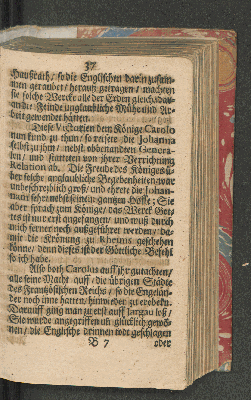 37
Haußrath/ so die Englischen darin zusam-
men geraubet/ herauß getragen/ machten
sie solche Wercke alle der Erden gleich/ dar-
an die Feinde unglaubliche Mühe und Ar-
beit gewendet hatten.
Diese Victorien dem Könige Carolo
nun kund zu thun/ so reisete die Johanna
selbst zu ihm/ nebst obbenandten Genera-
len/ und statteten von ihrer Verrichtung
Relation ab. Die Freude des Königes ü-
ber solche unglaubliche Begebenheiten war
unbeschreiblich groß/ und ehrete die Johan-
nam sehr nebst seinem gantzen Hoffe; Sie
aber sprach zum Könige/ das Werck Got-
tes ist nur erst angefangen/ und muß durch
mich ferner noch außgeführet werden/ da-
mit die Krönung zu Rheims geschehen
könne/ denn dieses ist der Göttliche Befehl
so ich habe.
Also bot Carolus auff ihr gutachten/
alle seine Macht auff/ die übrigen Städte
des Frantzösischen Reichs/ so die Engelän-
der noch inne hatten/ hinwieder zu erobern.
Darauff ging man zu erst auff Jargau loß/
Sie wurde angegriffen un glücklich gewon-
nen/ die Englische drinnen todt geschlagen
B 7
oder